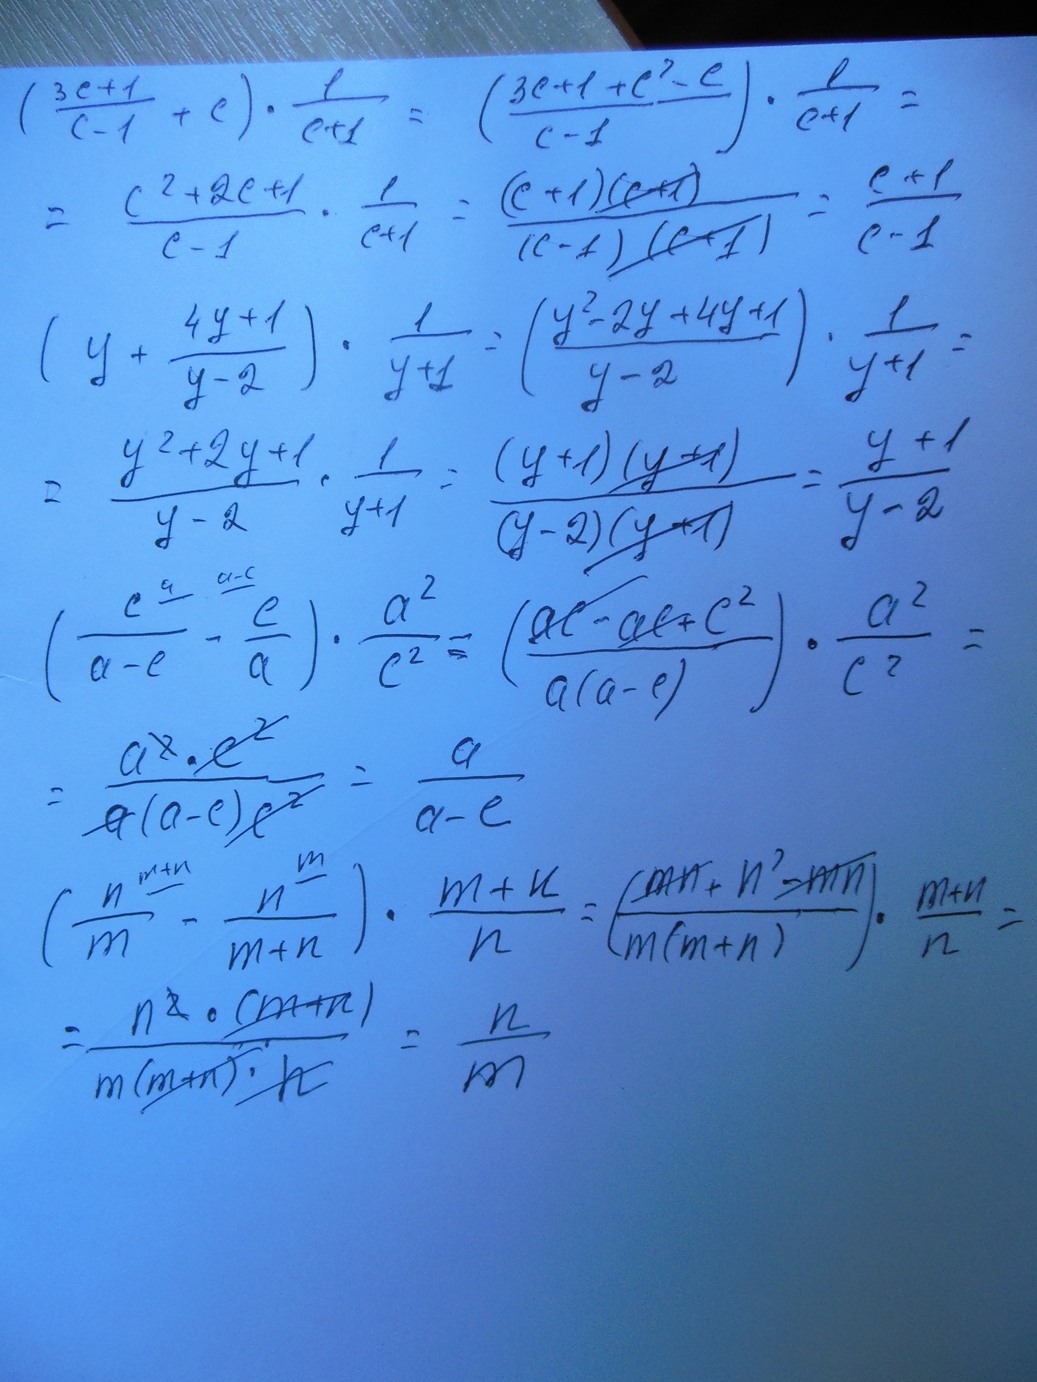 (3c+1/c-1 + c) · 1/c+1 = (3c+1+c²-c/c-1) · 1/c+1 =
= c²+2c+1/c-1 · 1/c+1 = (c+1)(c+1)/(c-1)(c+1) = c+1/c-1
(y + 4y+1/y-2) · 1/y+1 = (y²-2y+4y+1/y-2) · 1/y+1 =
= y²+2y+1/y-2 · 1/y+1 = (y+1)(y+1)/(y-2)(y+1) = y+1/y-2
(c a/a-c - a-c c/a) · a²/c² = (ac-ac+c²/a(a-c)) · a²/c² =
= a²·c²/a(a-c)c² = a/a-c
(n m+n/m - n m/m+n) · m+n/n = (mn+n²-mn/m(m+n)) · m+n/n =
= n²·(m+n)/m(m+n)·n = n/m